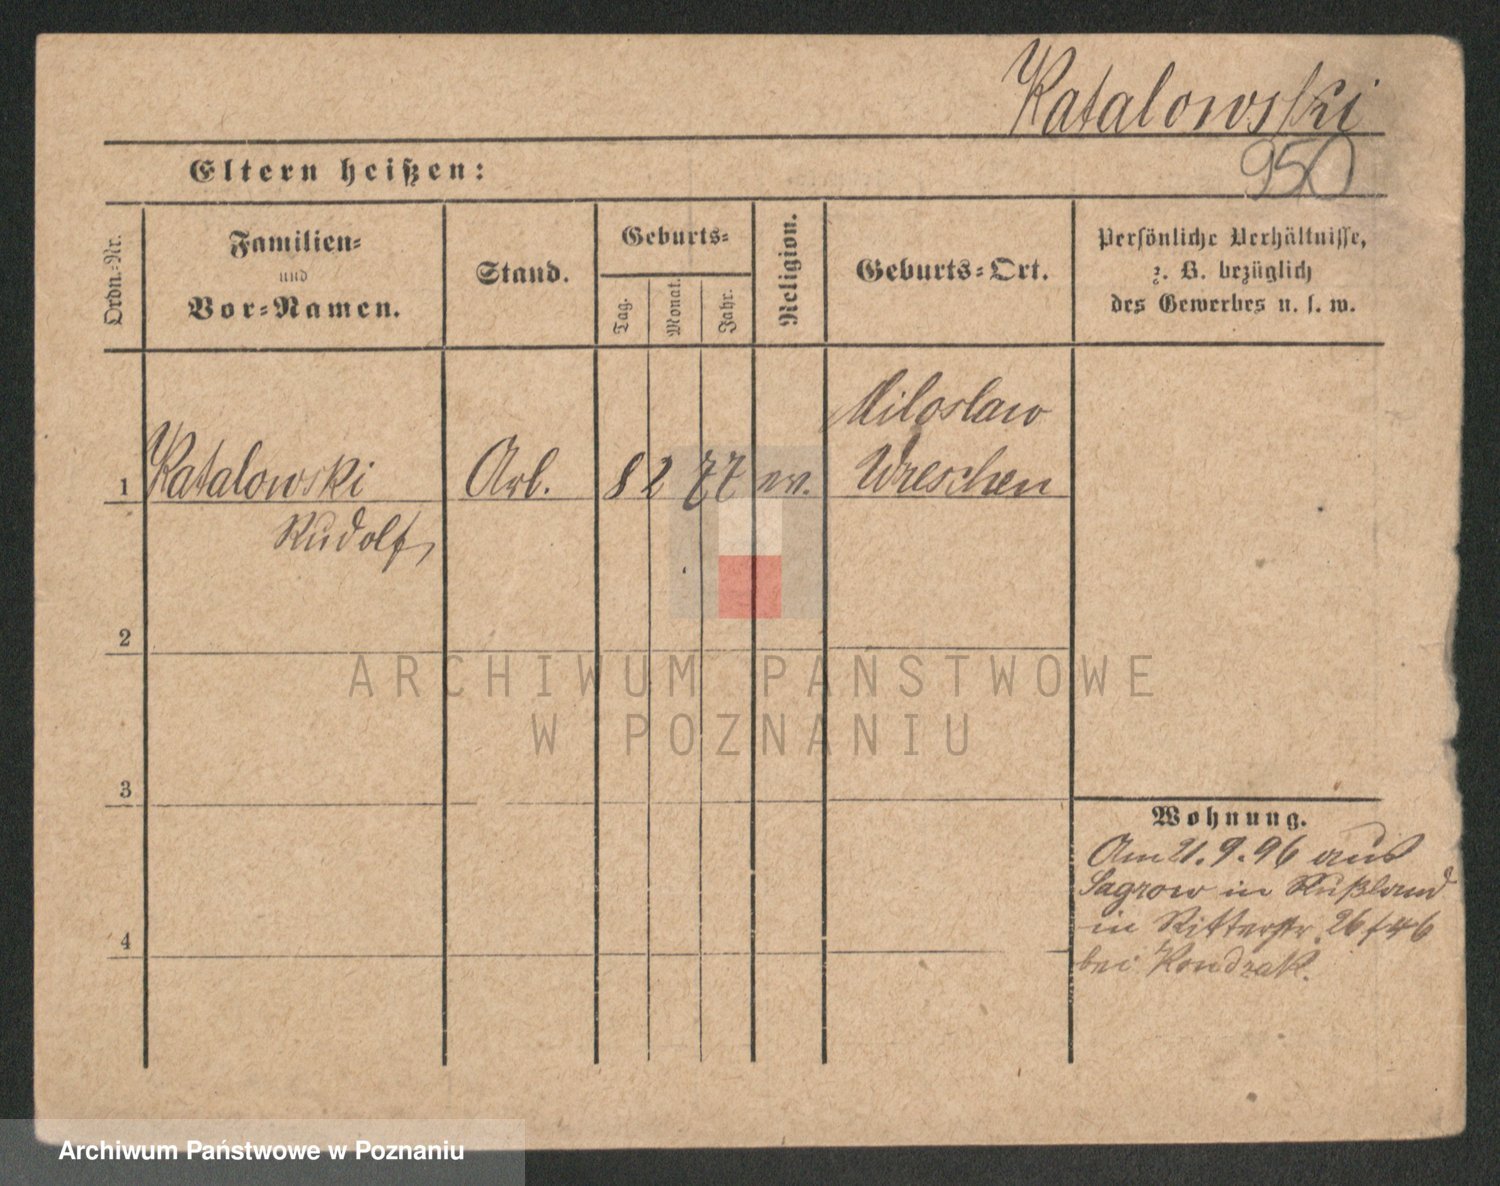 Katalowski
950
Eltern heißen:
Ordn.-Nr.
Familien-
und
Vor-Namen.
Stand.
Geburts-
Tag.
Monat.
Jahr.
Religion.
Geburts-Ort.
Persönliche Verhältnisse,
z. B. bezüglich
des Gewerbes u. s. w.
Miloslaw
1 Katalowski Arb. 8 2 77 ev. Wreschen
Rudolf
2
ARCHIWUM PAŃSTWOWE
W POZNANIU
3
Wohnung.
Am 21.9.96 aus
Sagrow in Rußland
4
in Ritterstr. 26/46
bei Kondzak.
Archiwum Państwowe w Poznaniu